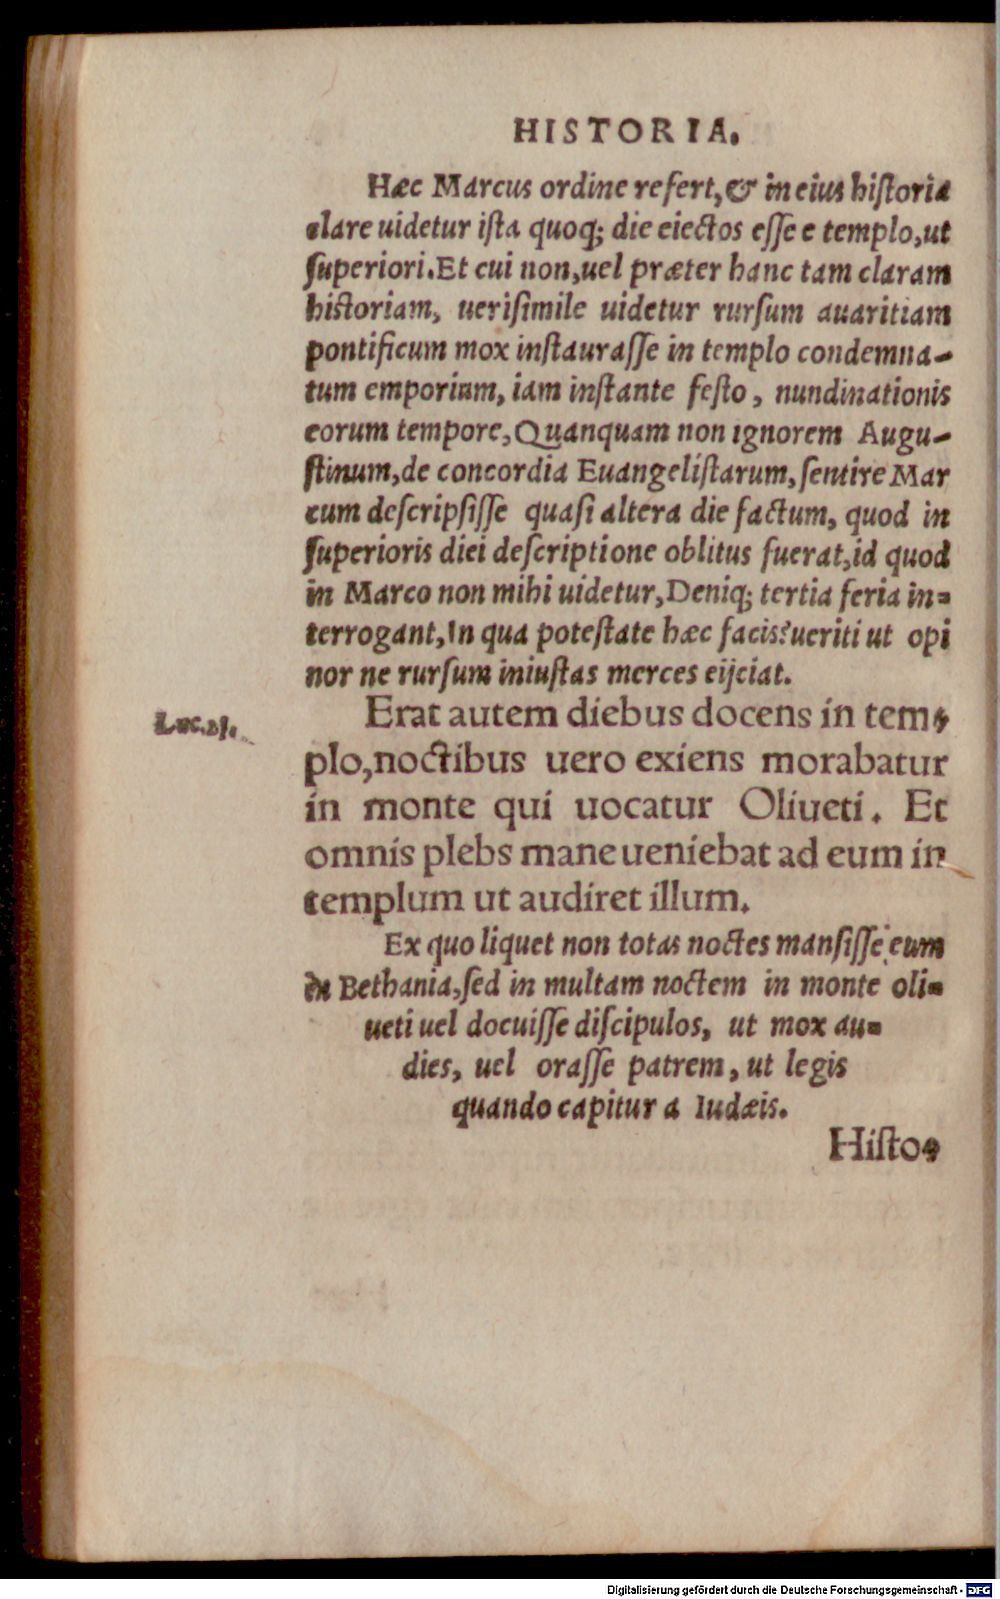 HISTORIA.
Hæc Marcus ordine refert, & in eius historia
clare uidetur ista quoq; die eiectos esse e templo, ut
superiori. Et cui non, uel præter hanc tam claram
historiam, uerisimile uidetur rursum auaritiam
pontificum mox instaurasse in templo condemna-
tum emporium, iam instante festo, nundinationis
eorum tempore, Quanquam non ignorem Augu-
stinum, de concordia Euangelistarum, sentire Mar
cum descripsisse quasi altera die factum, quod in
superioris diei descriptione oblitus fuerat, id quod
in Marco non mihi uidetur, Deniq; tertia feria in-
terrogant, In qua potestate hæc facis? ueriti ut opi
nor ne rursum iniustas merces eijciat.
Luc. 21.
Erat autem diebus docens in tem-
plo, noctibus uero exiens morabatur
in monte qui uocatur Oliueti. Et
omnis plebs mane ueniebat ad eum in
templum ut audiret illum.
Ex quo liquet non totas noctes mansisse eum
in Bethania, sed in multam noctem in monte oli-
ueti uel docuisse discipulos, ut mox au-
dies, uel orasse patrem, ut legis
quando capitur a Iudæis.
Histo-
Digitalisierung gefördert durch die Deutsche Forschungsgemeinschaft - DFG